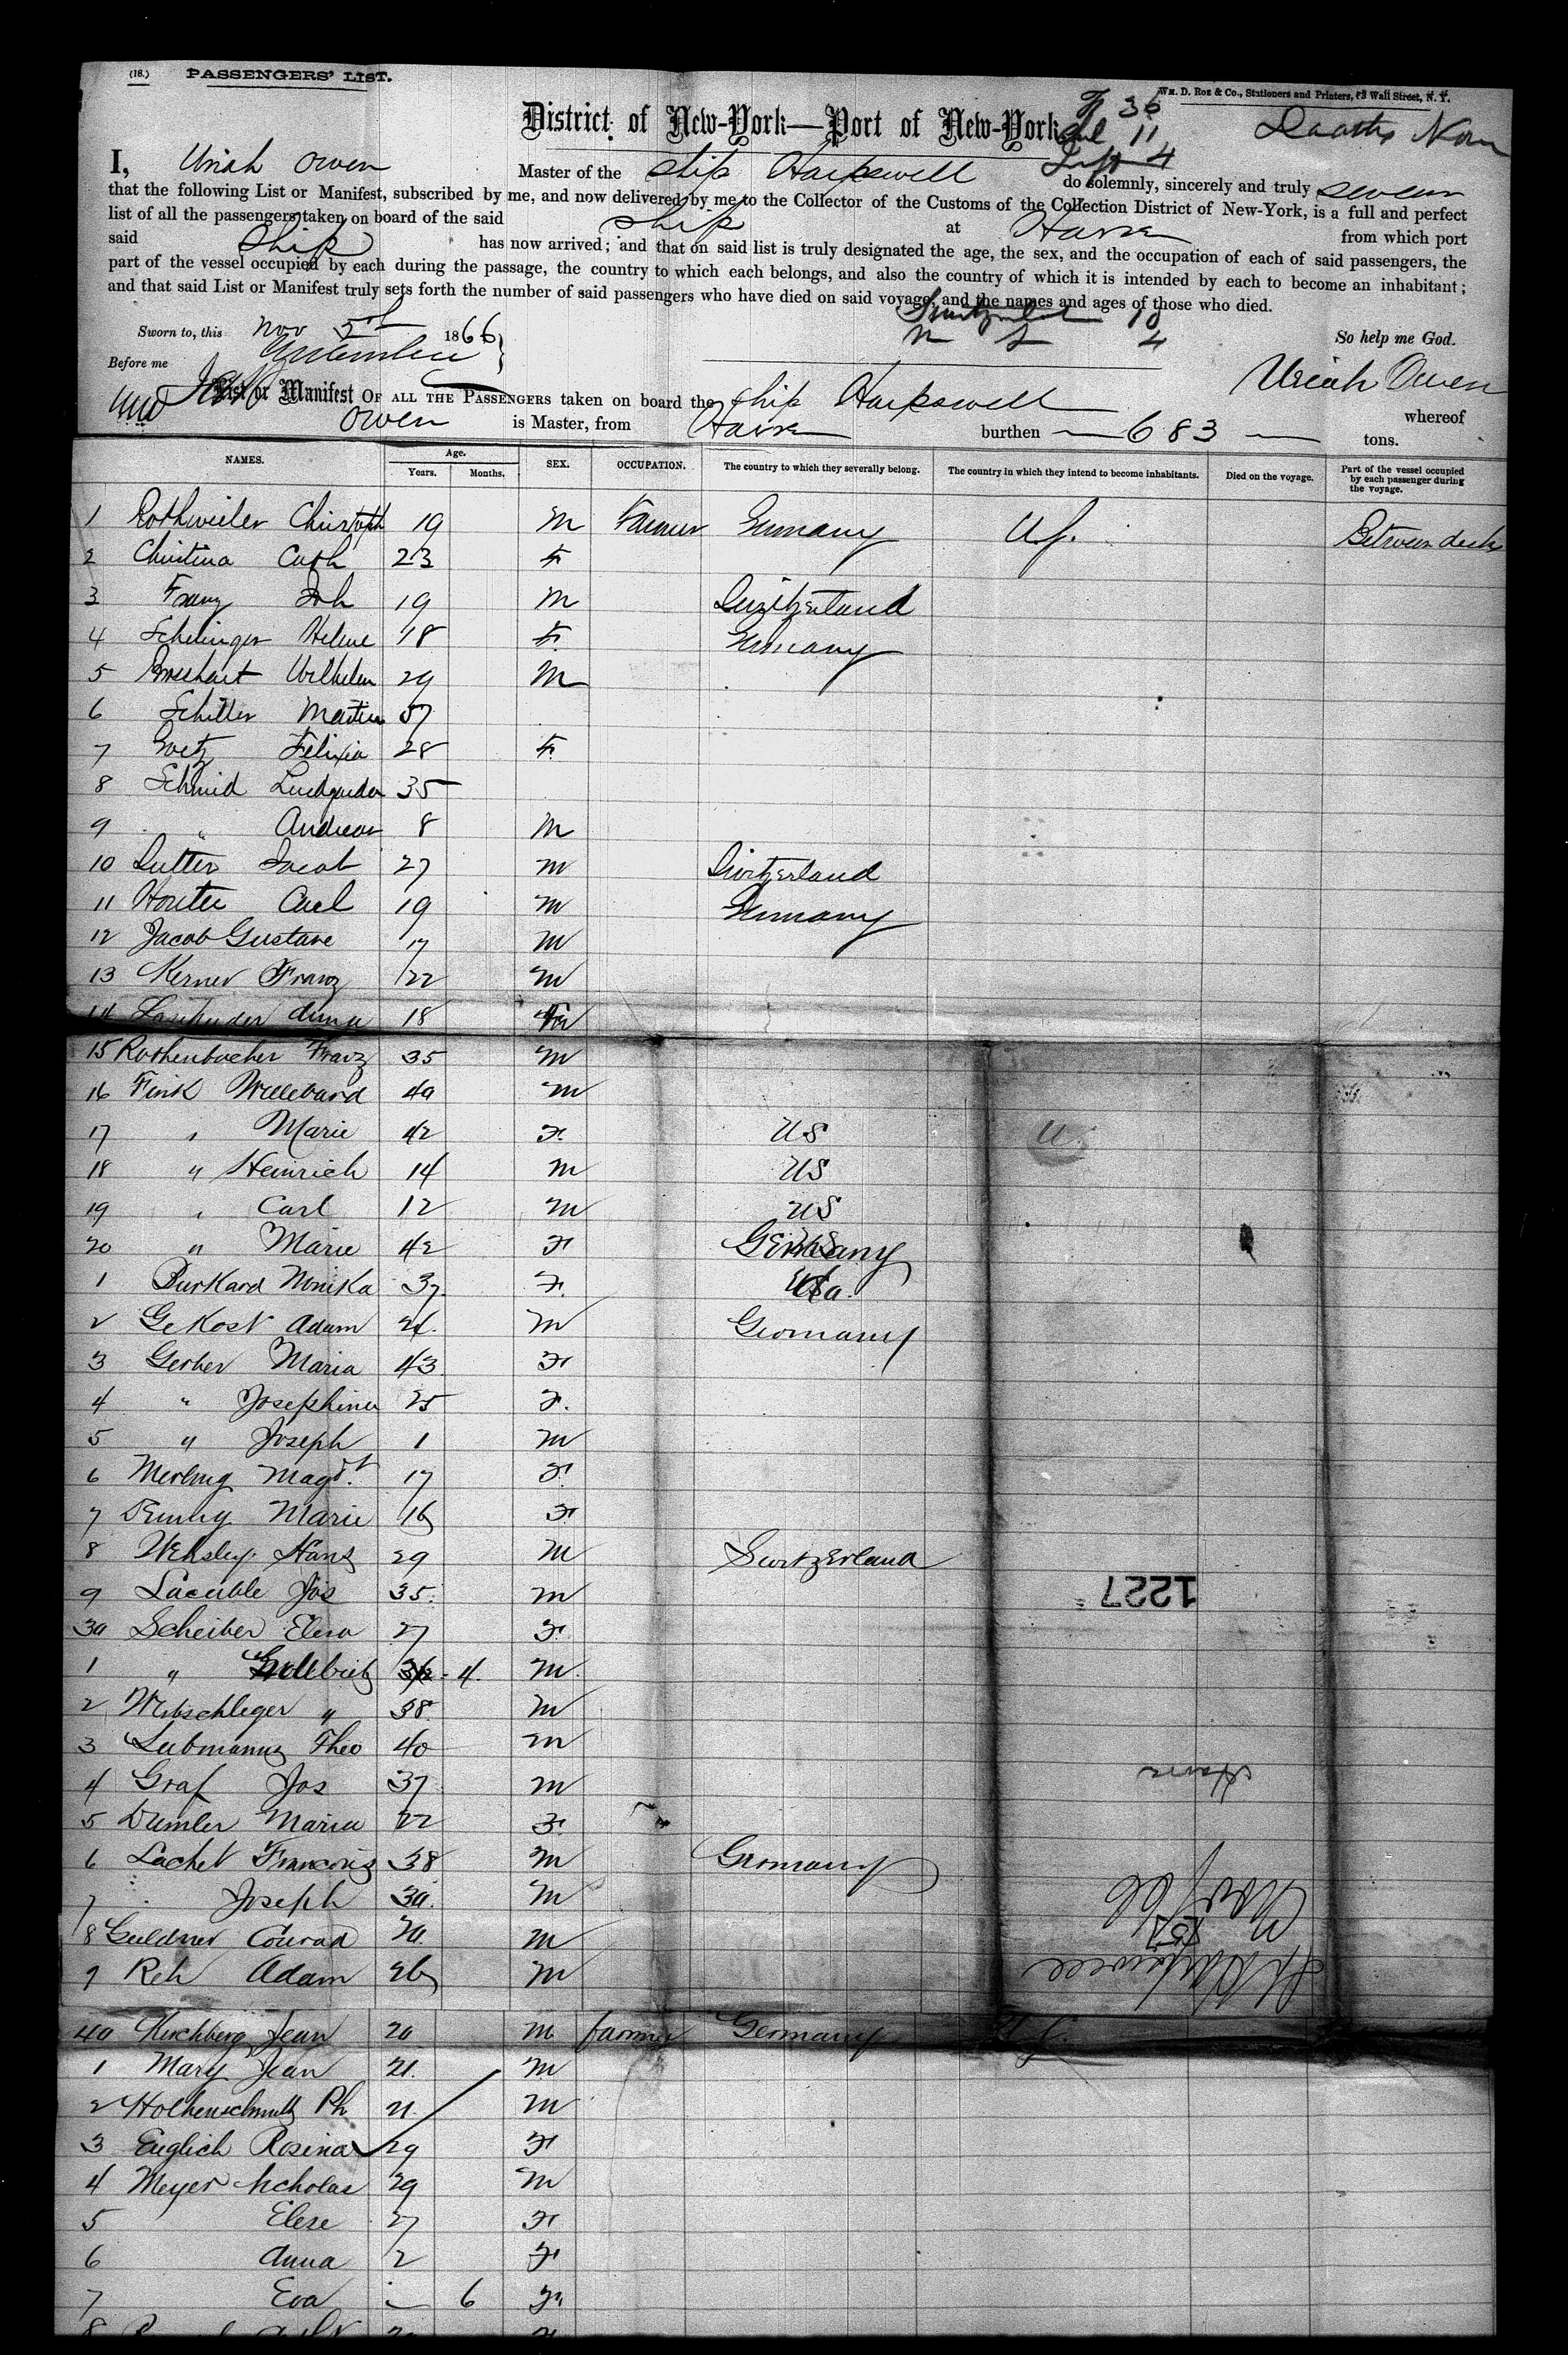 (18.) PASSENGERS' LIST.
Wm. D. Roe & Co., Stationers and Printers, Wall Street, N. Y.
District of New-York—Port of New-York
36
11
4
Deaths None
I, Uriah Owen Master of the Ship Harpswell do solemnly, sincerely and truly swear
that the following List or Manifest, subscribed by me, and now delivered by me to the Collector of the Customs of the Collection District of New-York, is a full and perfect
list of all the passengers taken on board of the said Ship at Havre from which port
said Ship has now arrived; and that on said list is truly designated the age, the sex, and the occupation of each of said passengers, the
part of the vessel occupied by each during the passage, the country to which each belongs, and also the country of which it is intended by each to become an inhabitant;
and that said List or Manifest truly sets forth the number of said passengers who have died on said voyage, and the names and ages of those who died.
Switzerland 10
4
Sworn to, this Nov 5th 1866 So help me God.
Before me Uriah Owen
List or Manifest OF ALL THE PASSENGERS taken on board the Ship Harpswell whereof
Owen is Master, from Havre burthen 683 tons.
NAMES. Age. Years. Months. SEX. OCCUPATION. The country to which they severally belong. The country in which they intend to become inhabitants. Died on the voyage. Part of the vessel occupied by each passenger during the voyage.
1 Rothweiler Christoph 19 M Farmer Germany US. Between decks
2 Christina Cath 23 F
3 Franz Joh 19 M Switzerland
4 Helene 18 F Germany
5 Wilhelm 29 M
6 Schiller 57
7 Goetz Felixia 28 F
8 Schmid 35
9 " Andreas 8 M
10 Sutter Jacob 27 M Switzerland
11 Carl 19 M Germany
12 Jacob Gustave 17 M
13 Kerner Franz 22 M
14 18
15 Rothenbacher Franz 35 M
16 Fink Willebard 40 M
17 " Marie 42 F. US
18 " Heinrich 14 M US
19 " Carl 12 M US
20 " Marie 42 F Germany
1 Burkard Monika 37 F.
2 Gekost Adam M Germany
3 Gerber Maria 43 F
4 " Josephine 25 F.
5 " Joseph 1 M
6 Magd. 17 F
7 Marie 16 F
8 Hans 29 M Switzerland
9 Jos 35 M
30 Scheiber Elisa 27 F
1 " 4 M
2 " 38 M
3 Theo 40 M
4 Graf Jos 37 M
5 Dumler Maria 22 F
6 Lachet Francois 38 M Germany
7 Joseph 30 M
8 Guldner Conrad M
9 Reh Adam 26 M
40 Kirchberg Jean 20 M farmer Germany
1 Mary Jean 21 M
2 Ph 21 M
3 Englich Rosina 29 F
4 Meyer Nicholas 29 M
5 Elise 27 F
6 Anna 2 F
7 Eva 6 F
8
1227
Havre
Nov 5/66
Harpswell